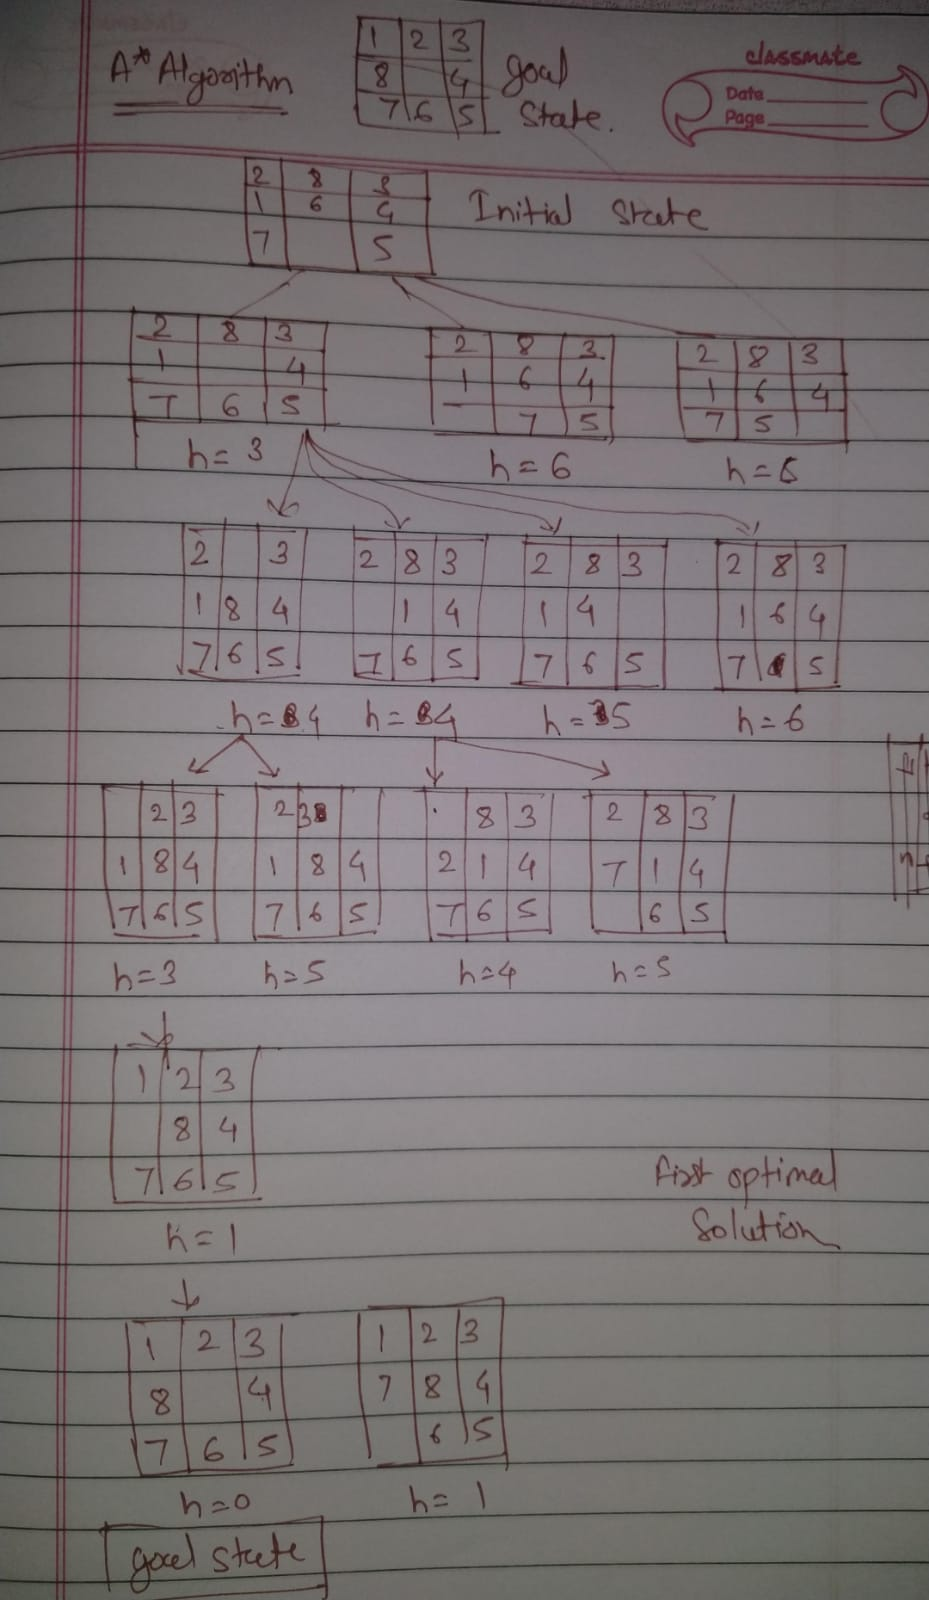 A* Algorithm
1 2 3
8 4
7 6 5
goal
state.
classmate
Date
Page
2 8 3
1 6 4
7 5
Initial State
2 8 3
1 4
7 6 5
h = 3
2 8 3
1 6 4
7 5
h = 6
2 8 3
1 6 4
7 5
2 3
1 8 4
7 6 5
h = 4
2 8 3
1 4
7 6 5
h = 4
2 8 3
1 4
7 6 5
h = 5
2 8 3
1 6 4
7 5
h = 6
2 3
1 8 4
7 6 5
h = 3
2 3
1 8 4
7 6 5
h = 5
8 3
2 1 4
7 6 5
h = 4
2 8 3
7 1 4
6 5
h = 5
1 2 3
8 4
7 6 5
h = 1
First optimal
Solution
1 2 3
8 4
7 6 5
h = 0
1 2 3
7 8 4
6 5
h = 1
goal state